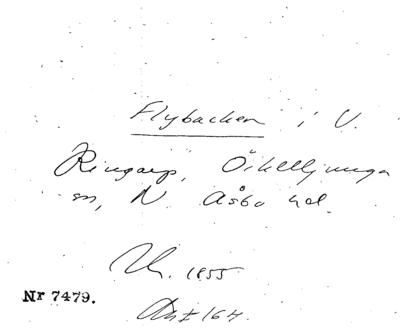 Flybacken i V.
Ringarp, Örkelljunga
sn, N. Åsbo hd.
Uk. 1855
Nr 7479.
164